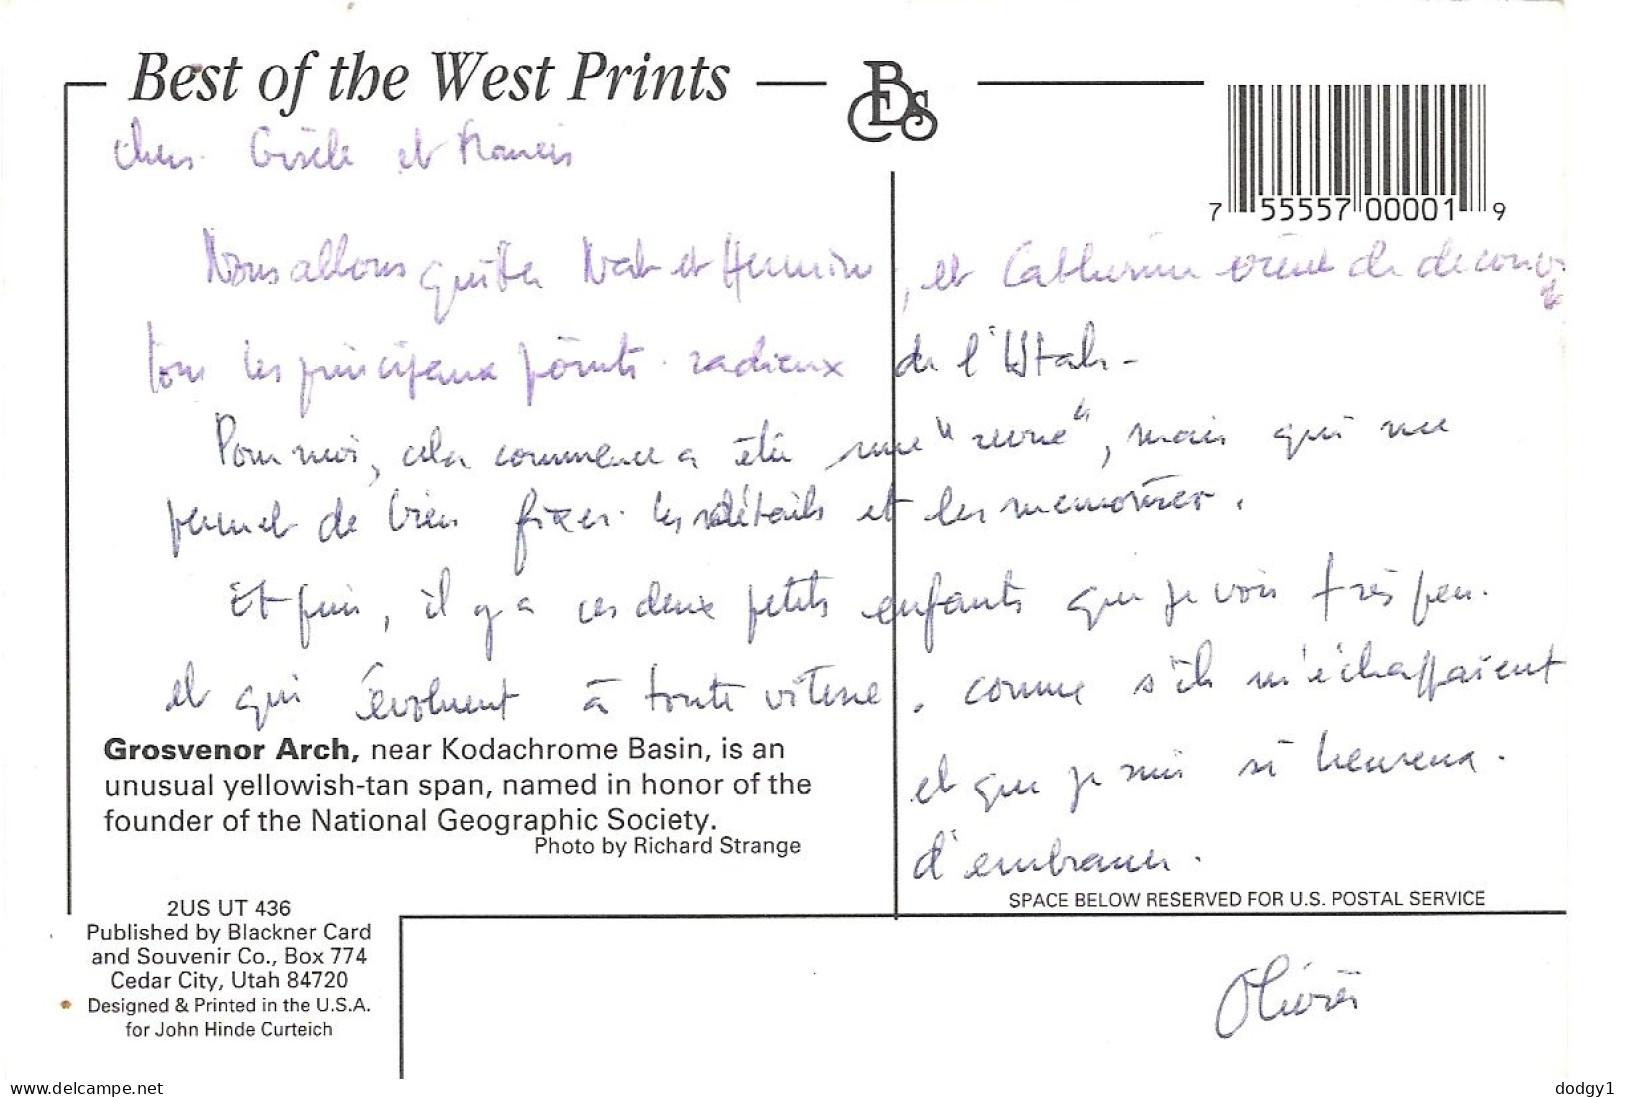 Best of the West Prints
CDS
7 55557 00001 9
Chers Gisèle et Francis
Nous allons quitter Nat et , et Catherine vient de decouv
tous les principaux points radieux de l'Utah -
Pour moi, cela commence a être une " ", mais qui me
permet de bien fixer les détails et les memoriser.
Et puis, il y a ces deux petits enfants que je vois très peu.
et qui évoluent à toute vitesse, comme s'ils m'échappaient
et que je suis si heureux
d'embrasser.
Olivier
Grosvenor Arch, near Kodachrome Basin, is an
unusual yellowish-tan span, named in honor of the
founder of the National Geographic Society.
Photo by Richard Strange
SPACE BELOW RESERVED FOR U.S. POSTAL SERVICE
2US UT 436
Published by Blackner Card
and Souvenir Co., Box 774
Cedar City, Utah 84720
Designed & Printed in the U.S.A.
for John Hinde Curteich
www.delcampe.net
dodgy1